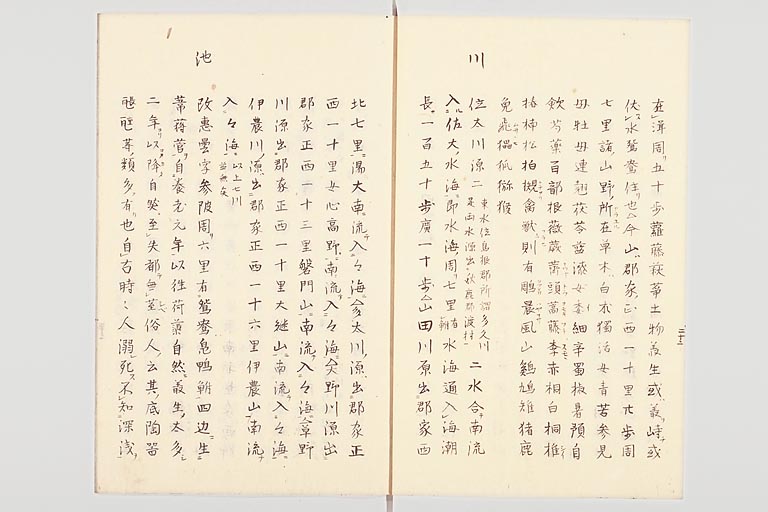 在渭周五十歩蘿藤荻芧土物叢生或叢峙或
伏水鴛鴦住也今山郡家正西一十里廿歩周
七里諸山野所在草木白朮獨活女青苦参貝
母牡丹連翹茯苓藍漆女委細辛蜀椒暑預自
歛芍薬百部根薇蕨薺頭蒿藤李赤桐白桐椎
椿楠松柏槻禽獣則有鵰晨風山鶏鳩雉猪鹿
兎飛鼯狐獼猴
川
佐太川源二 東水位島根郡所謂多久川是西水源出秋鹿郡渡村 二水合南流
入佐太水海即水海周七里有鮒水海通入海潮
長一百五十歩廣一十歩山田川原出郡家西
北七里湯大南流入々海多太川源出郡家正
西一十里女心高野南流入々海大野川源出
郡家正西一十三里磐門山南流入々海草野
川源出郡家正西一十里大継山南流入々海
伊農川源出郡家正西一十六里伊農山南流
入々海 以上七川並無魚
池
改惠曇字参陂周六里有鴛鴦鳧鴨鮒四辺生
葦蒋菅自養老元年以往荷蕖自然叢生太多
二年以降自然至失都無茎俗人云其底陶器
甂甕等類多有也自古時々人溺死不知深浅